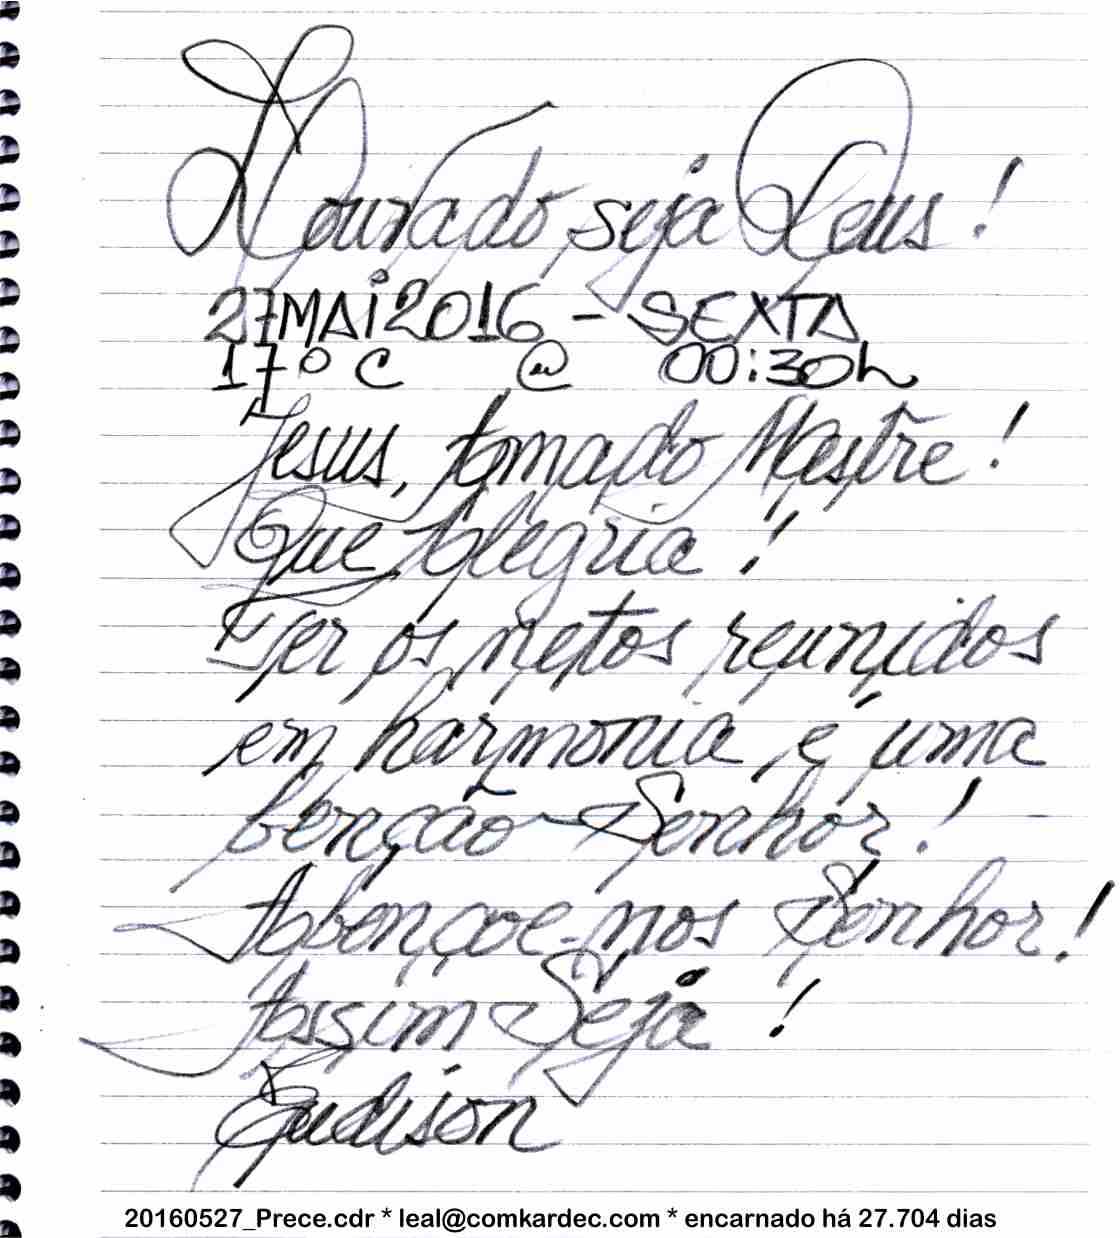 Louvado seja Deus!
27MAi2016 - SEXTA
17º C @ 00:30h
Jesus, Amado Mestre!
Que Alegria!
Ter os netos reunidos
em harmonia é uma
benção Senhor!
Abençoe-nos Senhor!
Assim Seja!
Eudison
20160527_Prece.cdr * leal@comkardec.com * encarnado há 27.704 dias